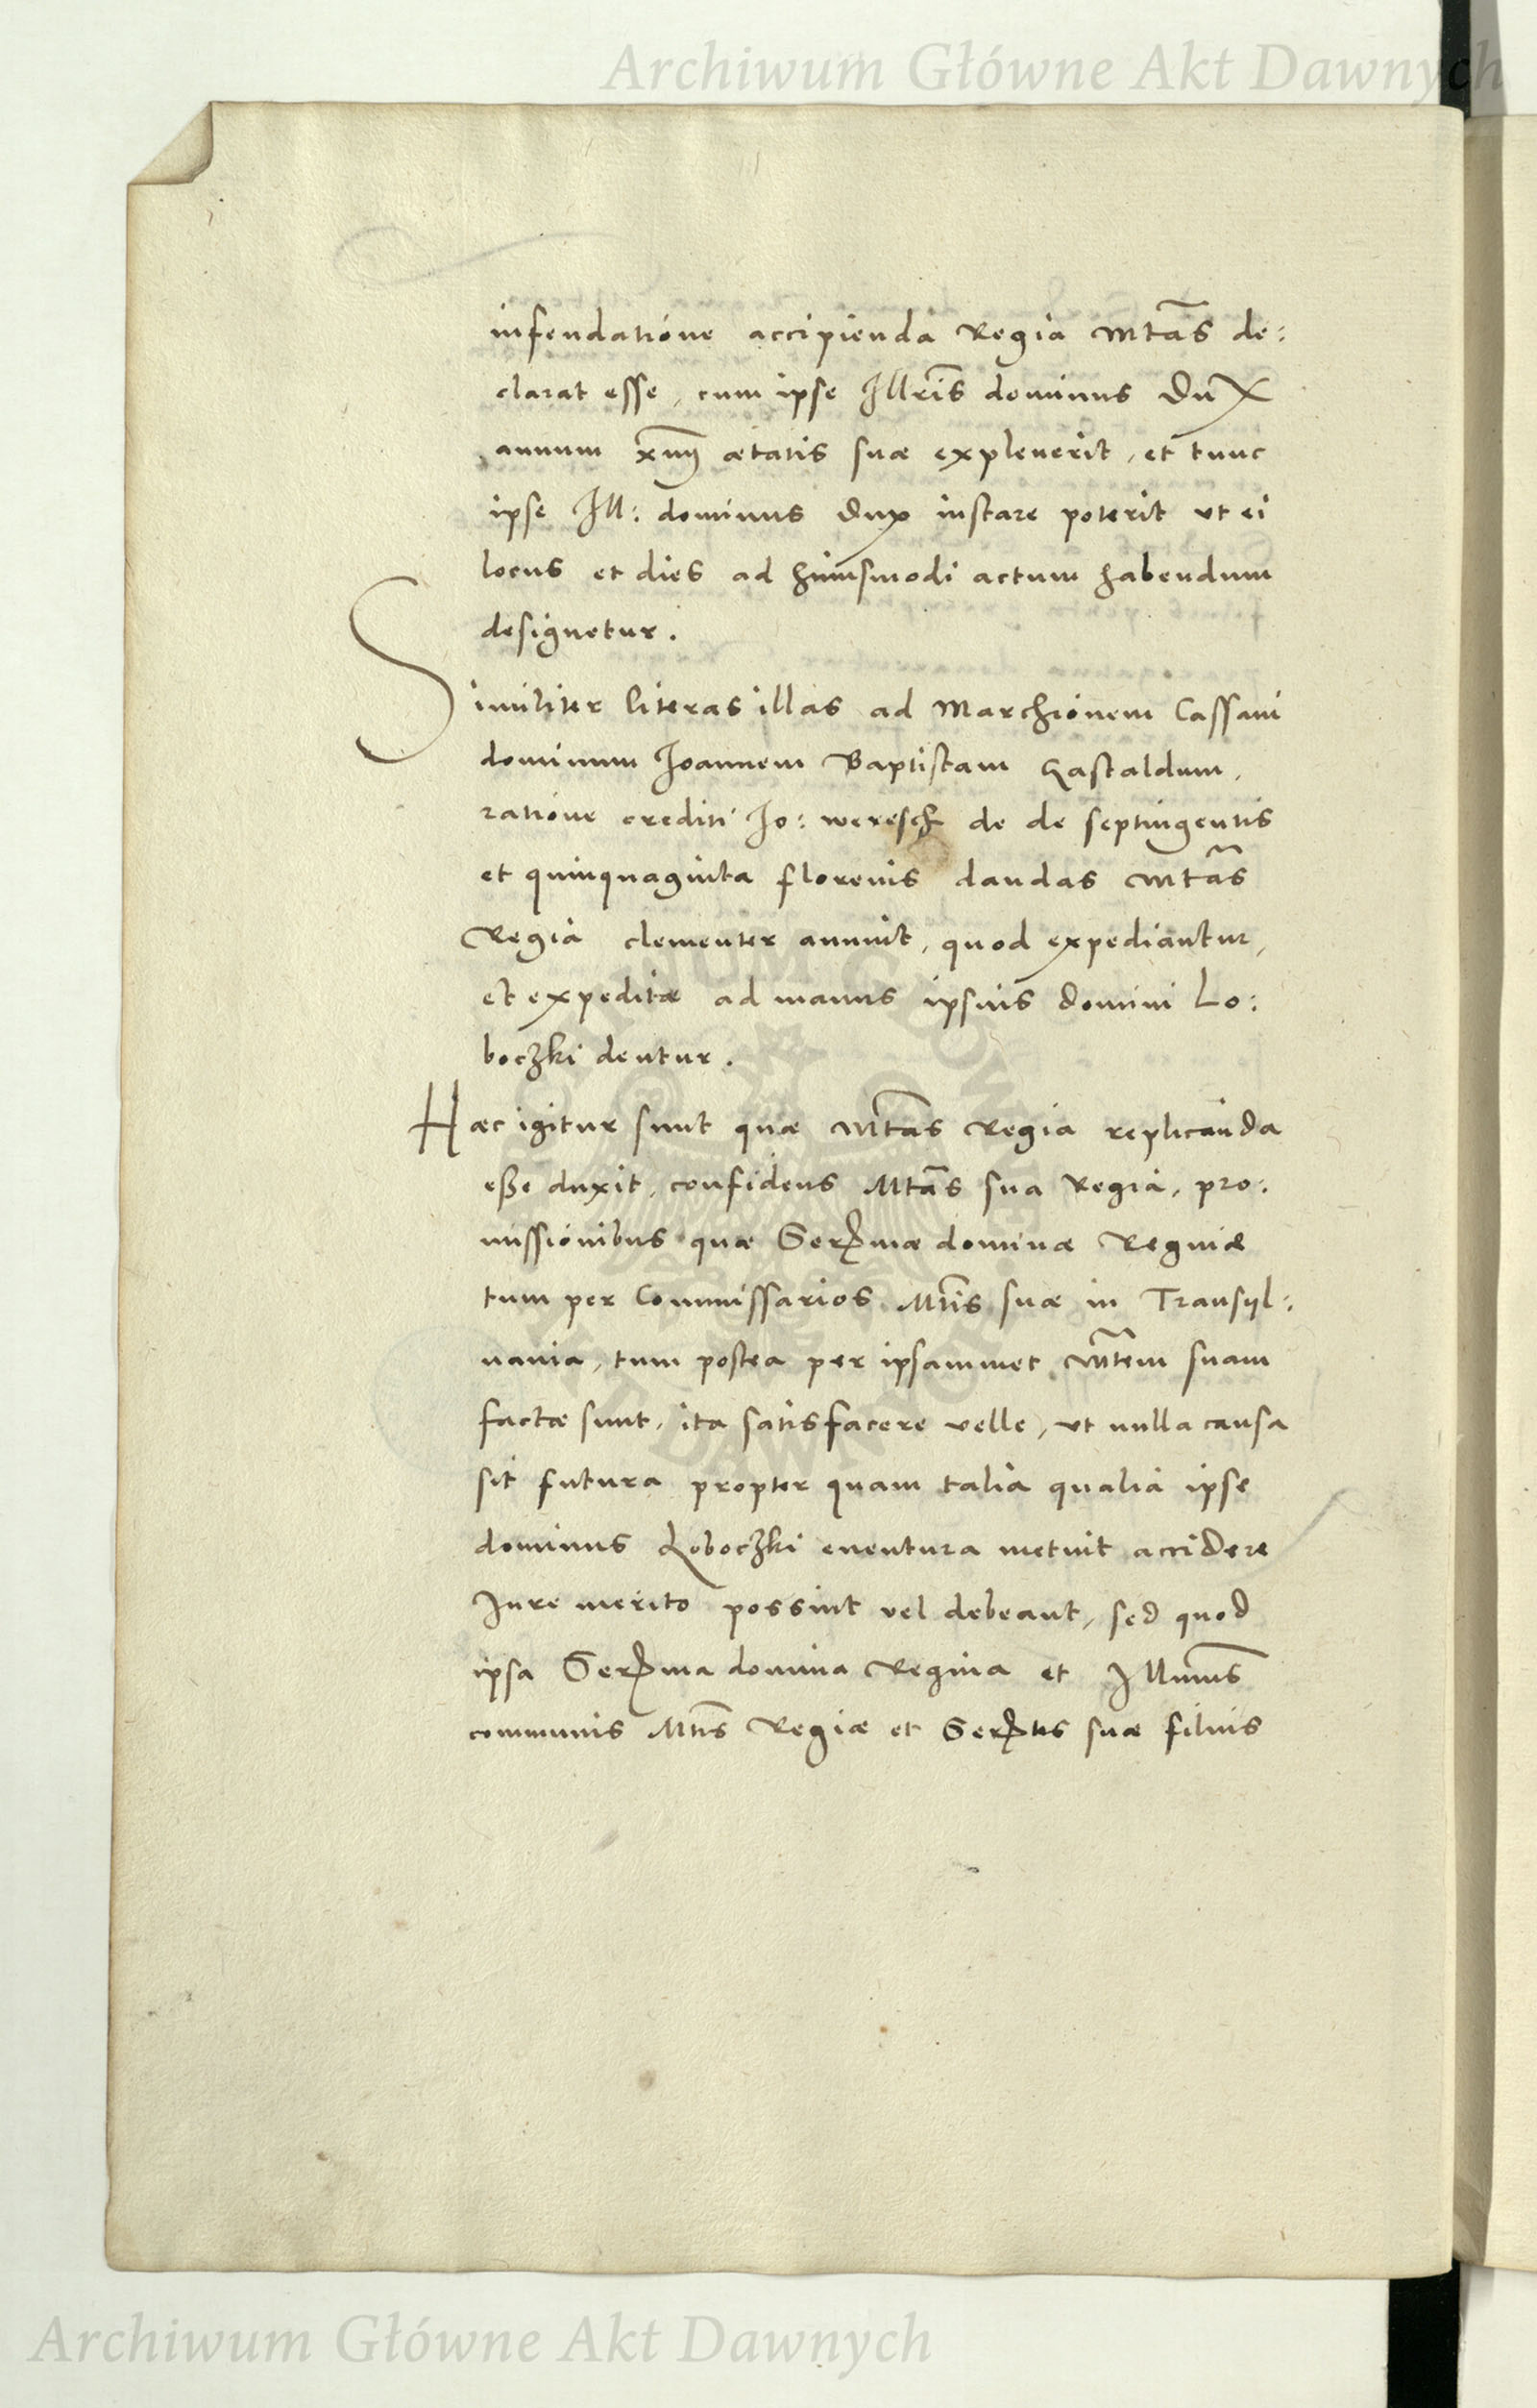 Archiwum Główne Akt Dawnych
infeudatione accipienda Regia Mtas de:
clarat esse, cum ipse Illris dominus Dux
annum xiiij ætatis suæ expleuerit, et tunc
ipse Ill: dominus dux instare poterit vt ei
locus et dies ad huiusmodi actum habendum
designetur.
Similiter literas illas ad Marchionem Cassani
dominum Joannem Baptistam Castaldum,
ratione crediti Jo: weresch de de septingentis
et quinquaginta florenis dandas Mtas
Regia clementer annuit, quod expediantur,
et expeditæ ad manus ipsius domini Lo:
boczki dentur.
Hæc igitur sunt quæ Mtas Regia replicanda
esse duxit, confidens Mtas sua Regia, pro:
missionibus quæ Sermæ dominæ Reginæ
tum per Commissarios Mtis suæ in Transyl:
uania, tum postea per ipsammet Mtem suam
factæ sunt, ita satisfacere velle, vt nulla causa
sit futura propter quam talia qualia ipse
dominus Loboczki euentura metuit accidere
Jure merito possint vel debeant, sed quod
ipsa Serma domina Regina et Illmus
communis Mtis Regiæ et Sertis suæ filius
ARCHIWUM GŁÓWNE AKT DAWNYCH
Archiwum Główne Akt Dawnych